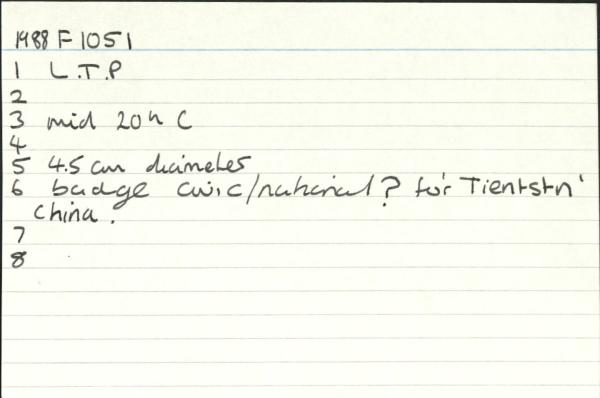 1988 F 1051
1 L.T.P
2
3 mid 20th C
4
5 4.5 cm diameter
6 badge civic/national? for 'Tientstn'
China.
7
8